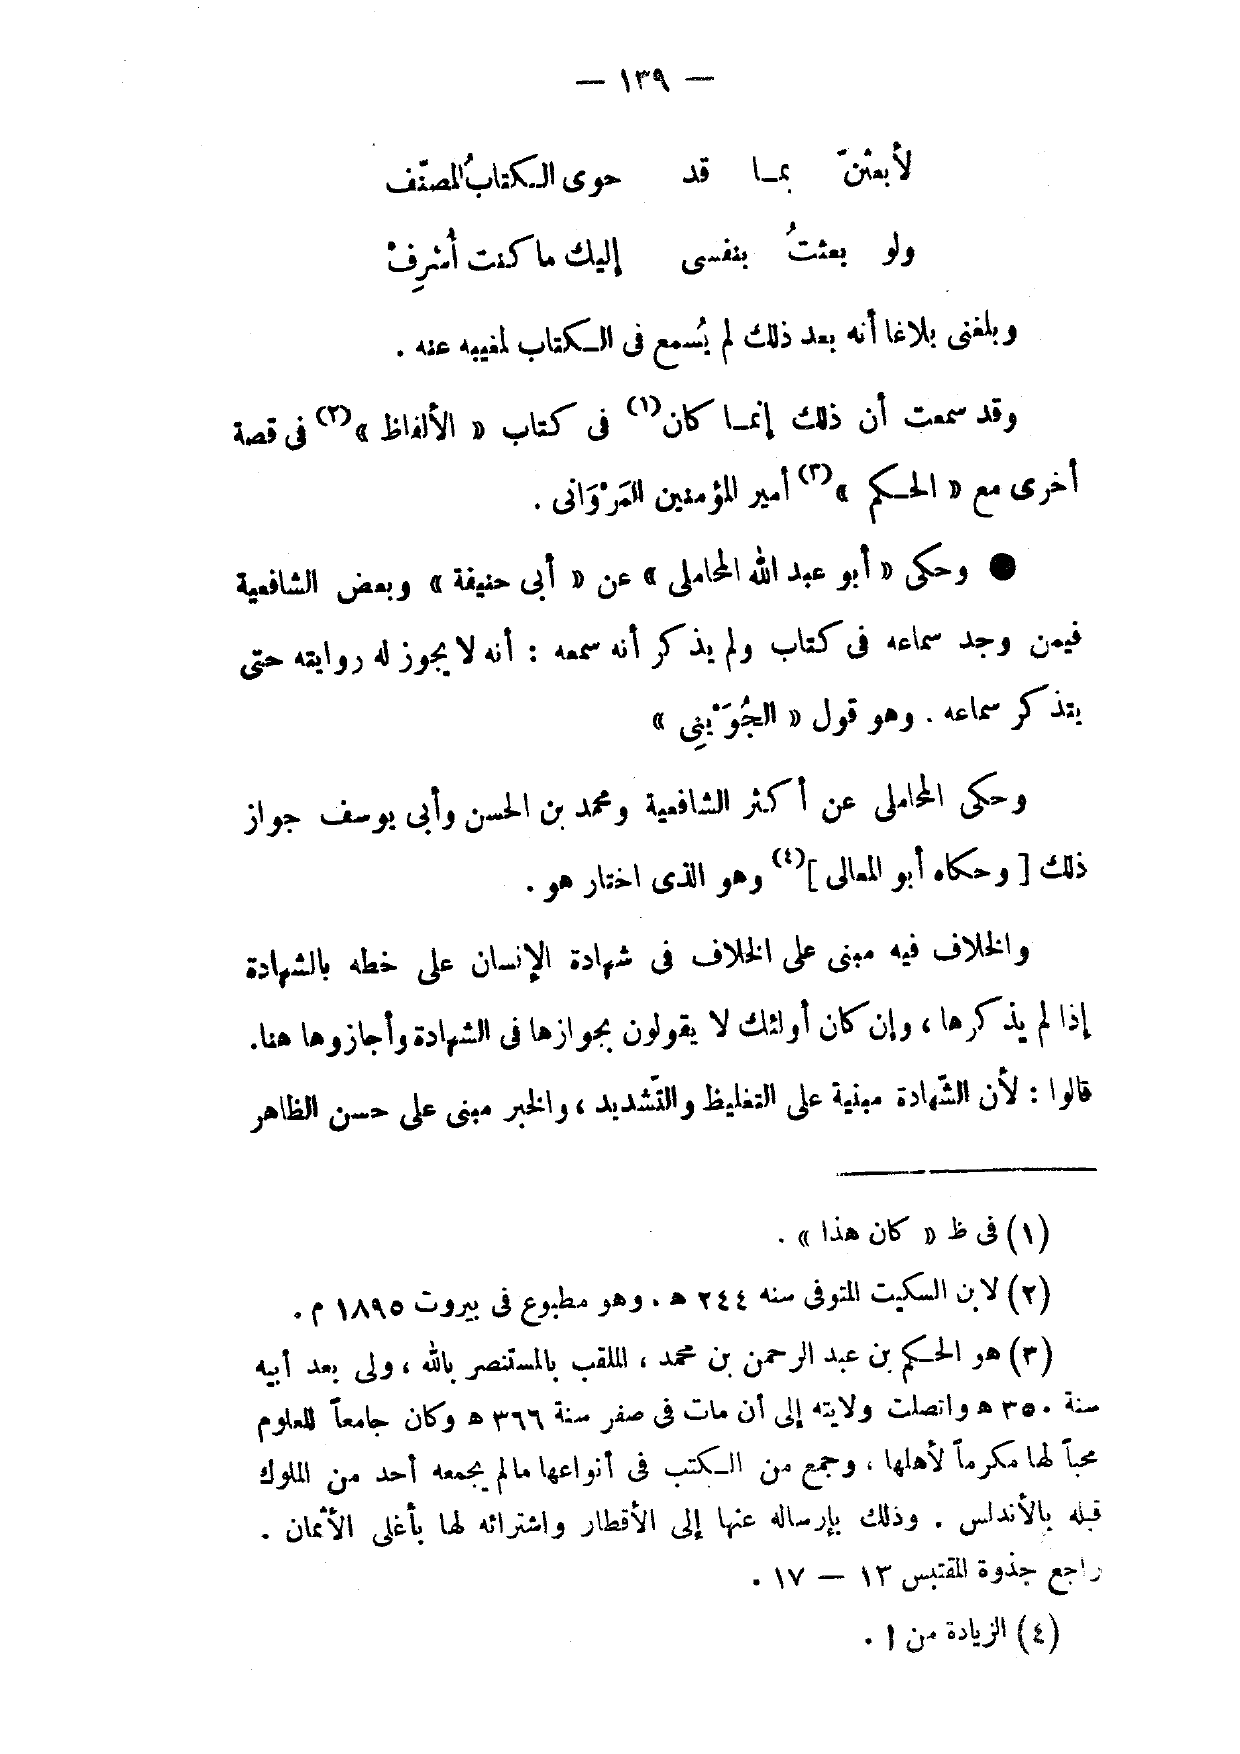 — ١٣٩ —
لأبعثْنّ بمـا قد حوى الـكتابُ المصنّف
ولو بعثتُ بنفسى إليك ما كنت أُشرِفْ
وبلغنى بلاغا أنه بعد ذلك لم يُسمع فى الـكتاب لمغيبه عنه .
وقد سمعت أن ذلك إنمـا كان(١) فى كتاب « الألفاظ »(٢) فى قصة
أخرى مع « الحـكم »(٣) أمير المؤمنين المَرْوَانى .
● وحكى « أبو عبد الله المحاملى » عن « أبى حنيفة » وبعض الشافعية
فيمن وجد سماعه فى كتاب ولم يذكر أنه سمعه : أنه لا يجوز له روايته حتى
يتذكر سماعه . وهو قول « الجُوَيْنِى »
وحكى المحاملى عن أكثر الشافعية ومحمد بن الحسن وأبى يوسف جواز
ذلك [ وحكاه أبو المعالى ](٤) وهو الذى اختار هو .
والخلاف فيه مبنى على الخلاف فى شهادة الإنسان على خطه بالشهادة
إذا لم يذكرها ، وإن كان أولئك لا يقولون بجوازها فى الشهادة وأجازوها هنا.
قالوا : لأن الشّهادة مبنية على التغليظ والتّشديد ، والخبر مبنى على حسن الظاهر
(١) فى ظ « كان هذا » .
(٢) لابن السكيت المتوفى سنه ٢٤٤ هـ . وهو مطبوع فى بيروت ١٨٩٥ م .
(٣) هو الحـكم بن عبد الرحمن بن محمد ، الملقب بالمستنصر بالله ، ولى بعد أبيه
سنة ٣٥٠ هـ واتصلت ولايته إلى أن مات فى صفر سنة ٣٦٦ هـ وكان جامعاً للعلوم
محباً لها مكرماً لأهلها ، وجمع من الـكتب فى أنواعها مالم يجمعه أحد من الملوك
قبله بالأندلس . وذلك بإرساله عنها إلى الأقطار واشترائه لها بأغلى الأثمان .
راجع جذوة المقتبس ١٣ — ١٧ .
(٤) الزيادة من ا .